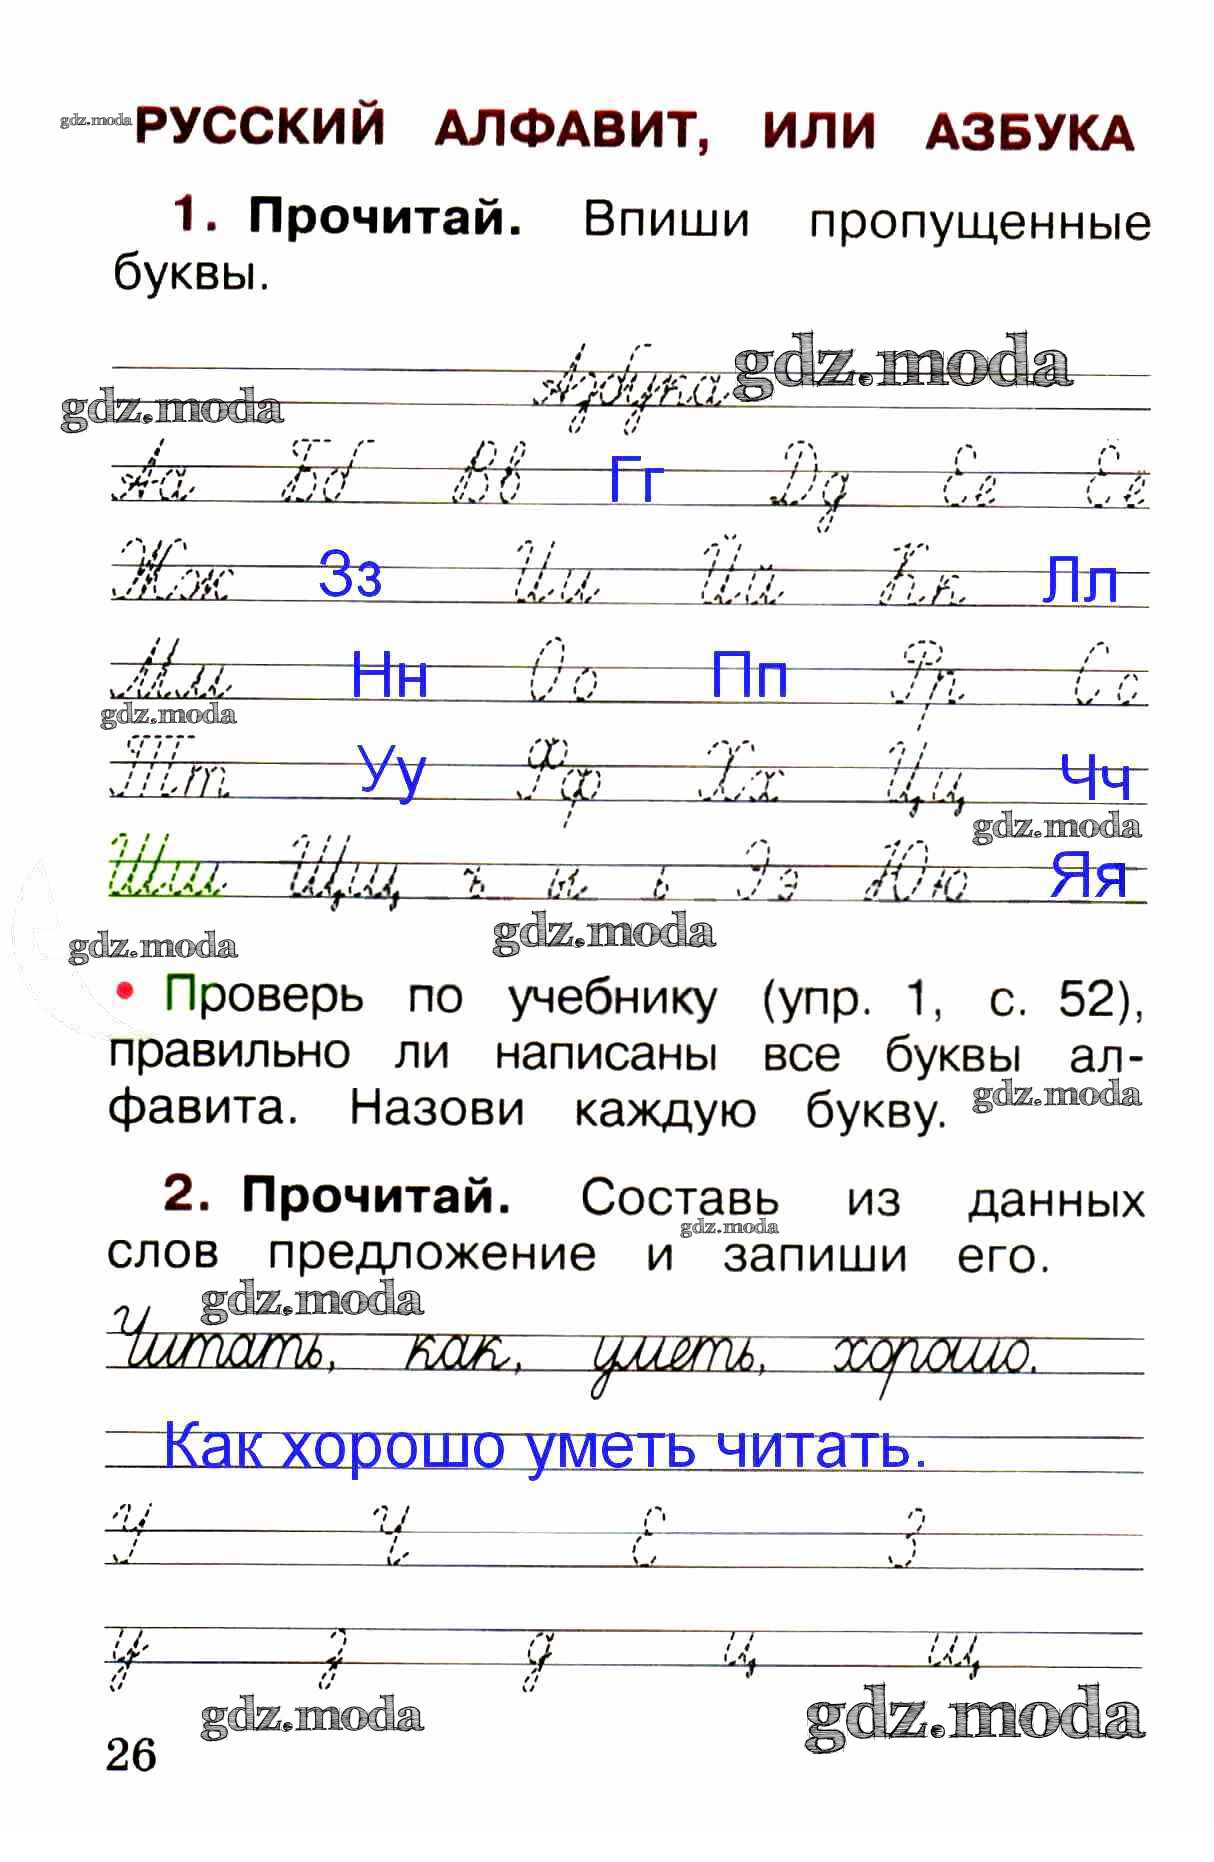 gdz.moda РУССКИЙ АЛФАВИТ, ИЛИ АЗБУКА
1. Прочитай. Впиши пропущенные
буквы.
Азбука gdz.moda
gdz.moda
Аа Бб Вв Гг Дд Ее Ёё
Жж Зз Ии Йй Кк Лл
Мм Нн Оо Пп Рр Сс
gdz.moda
Тт Уу Фф Хх Цц Чч
gdz.moda
Шш Щщ ъ ы ь Ээ Юю Яя
gdz.moda gdz.moda
• Проверь по учебнику (упр. 1, с. 52),
правильно ли написаны все буквы ал-
фавита. Назови каждую букву. gdz.moda
2. Прочитай. Составь из данных
gdz.moda
слов предложение и запиши его.
gdz.moda
Читать, как, уметь, хорошо.
Как хорошо уметь читать.
У Ч Е З
у з д ц щ
gdz.moda gdz.moda
26